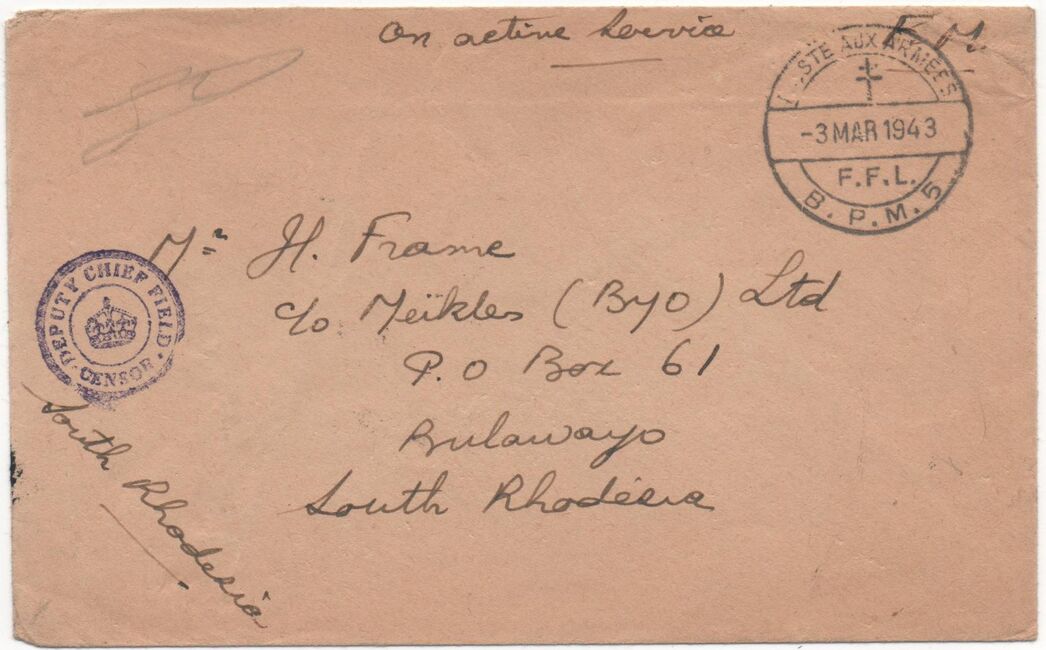 On active Service
F. M.
POSTE AUX ARMEES
-3 MAR 1943
F.F.L.
B.P.M. 5
Mr H. Frame
c/o Meïkles (Byo) Ltd
P.O Box 61
Bulawayo
South Rhodésia
DEPUTY CHIEF FIELD
CENSOR
South Rhodesia